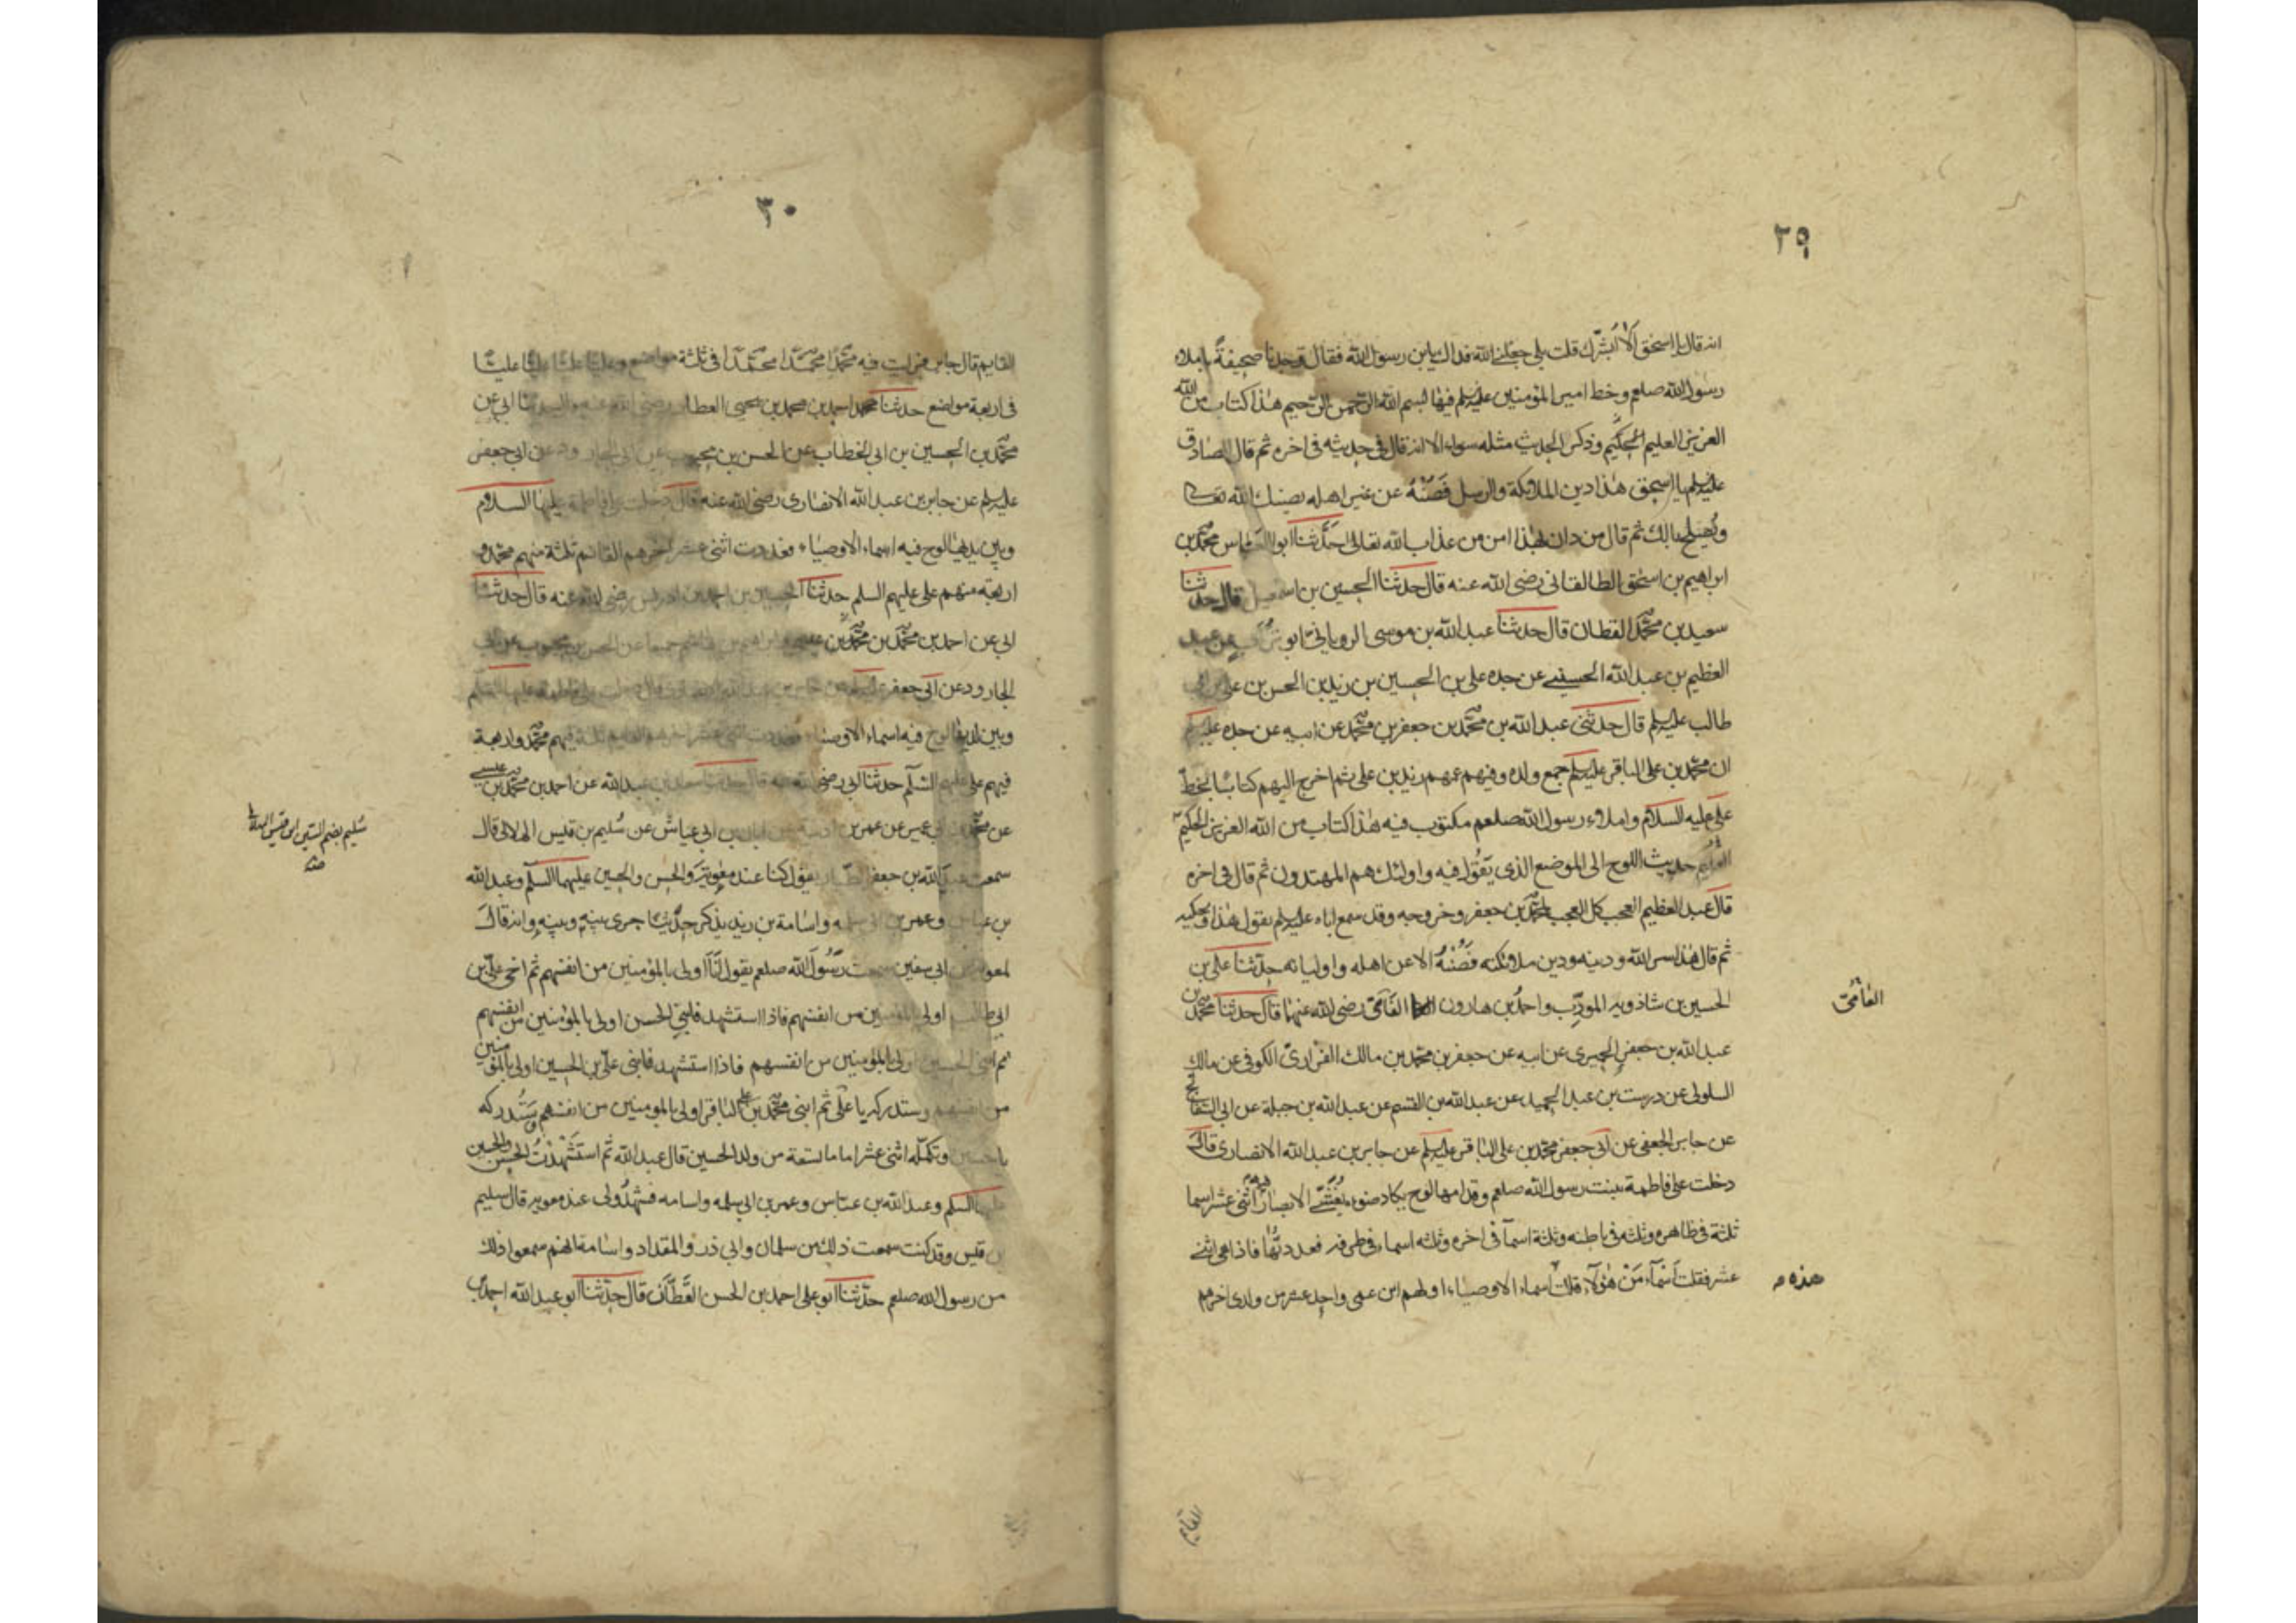 ٢٩
انه قال يا اسحق الا ابشرك قلت بلى جعلنى الله فداك يابن رسول الله فقال وجدنا صحيفة باملاء
رسول الله صلعم وخط امير المؤمنين عليه السلم فيها بسم الله الرحمن الرحيم هذا كتاب من الله
العزيز العليم الحكيم وذكر الحديث مثله سواء الا انه قال فى حديثه فى اخره ثم قال الصادق
عليه السلم يا اسحق هذا دين الملائكة والرسل فصنه عن غير اهله يصنك الله تعالى
ويصلح بالك ثم قال من دان بهذا امن من عذاب الله تعالى حدثنا ابو العباس محمد بن
ابراهيم بن اسحق الطالقانى رضى الله عنه قال حدثنا الحسين بن اسمعيل قال حدثنا
سعيد بن محمد القطان قال حدثنا عبد الله بن موسى الرويانى ابو تراب عن عبد
العظيم بن عبد الله الحسنى عن جده على بن الحسين بن زيد بن الحسن بن على بن ابى
طالب عليه السلم قال حدثنى عبد الله بن محمد بن جعفر بن محمد عن ابيه عن جده عليه السلم
ان محمد بن على الباقر عليه السلم جمع ولده وفيهم عمهم زيد بن على ثم اخرج اليهم كتابا بخط
على عليه السلام واملاء رسول الله صلعم مكتوب فيه هذا كتاب من الله العزيز الحكيم
العليم حديث اللوح الى الموضع الذى يقول فيه واولئك هم المهتدون ثم قال فى اخره
قال عبد العظيم العجب كل العجب لمحمد بن جعفر وخروجه وقد سمع اباه عليه السلم يقول هذا ويحكيه
ثم قال هذا سر الله ودينه ودين ملائكته فصنه الا عن اهله واوليائه حدثنا على بن
الحسين بن شاذويه المودب واحمد بن هارون الفامى رضى الله عنهما قال حدثنا محمد بن
الفامى
عبد الله بن جعفر الحميرى عن ابيه عن جعفر بن محمد بن مالك الفزارى الكوفى عن مالك
السلولى عن درست بن عبد الحميد عن عبد الله بن القسم عن عبد الله بن جبلة عن ابى السفاتج
عن جابر الجعفى عن ابى جعفر محمد بن على الباقر عليه السلم عن جابر بن عبد الله الانصارى قال
دخلت على فاطمة بنت رسول الله صلعم وقدامها لوح يكاد ضوءه يغشى الابصار فيه اثنى عشر اسما
ثلثة فى ظاهره وثلثه فى باطنه وثلثة اسما فى اخره وثلثه اسماء فى طرفه فعددتها فاذا هى اثنى
عشر فقلت اسماء من هؤلاء قلت اسماء الاوصياء اولهم ابن عمى واحد عشر من ولدى اخرهم
هذه
القايم
٣٠
القايم قال جابر فرايت فيه محمدا محمدا محمدا فى ثلثة مواضع وعليا عليا عليا عليا
فى اربعة مواضع حدثنا محمد احمد بن محمد بن يحيى العطار رضى الله عنه قال حدثنا ابى عن
محمد بن الحسين بن ابى الخطاب عن الحسن بن محبوب عن ابى الجارود عن ابى جعفر
عليه السلم عن جابر بن عبد الله الانصارى رضى الله عنه قال دخلت على فاطمة عليها السلام
وبين يديها لوح فيه اسماء الاوصياء فعددت اثنى عشر اخرهم القائم ثلثة منهم محمد و
اربعة منهم على عليهم السلم حدثنا الحسين بن احمد بن ادريس رضى الله عنه قال حدثنا
ابى عن احمد بن محمد بن عيسى وابراهيم بن هاشم جميعا عن الحسن بن محبوب عن ابى
الجارود عن ابى جعفر عليه السلم عن جابر بن عبد الله الانصارى قال دخلت على فاطمة عليها السلم
وبين يديها لوح فيه اسماء الاوصياء فعددت اثنى عشر اخرهم القايم ثلثة منهم محمد واربعة
فيهم على عليهم السلم حدثنا ابى رضى الله عنه قال حدثنا سعد بن عبد الله عن احمد بن محمد بن عيسى
عن محمد بن ابى عمير عن عمر بن اذينة عن ابان بن ابى عياش عن سليم بن قيس الهلالى قال
سليم بضم السين ابن قيس الهلالى
سمعت عبد الله بن جعفر الطيار يقول كنا عند معوية والحسن والحسين عليهما السلم وعبد الله
بن عباس وعمر بن ابى سلمه واسامة بن زيد يذكر حديثا جرى بينه وبينه وانه قال
لمعوية بن ابى سفين سمعت رسول الله صلعم يقول انا اولى بالمؤمنين من انفسهم ثم اخى على بن
ابى طالب اولى بالمؤمنين من انفسهم فاذا استشهد فابنى الحسن اولى بالمؤمنين من انفسهم
ثم ابنى الحسين اولى بالمؤمنين من انفسهم فاذا استشهد فابنى على بن الحسين اولى بالمؤمنين
من انفسهم وستدركه يا على ثم ابنى محمد بن على الباقر اولى بالمومنين من انفسهم وستدركه
يا حسين وتكمله اثنى عشر اماما تسعة من ولد الحسين قال عبد الله ثم استشهدت الحسن والحسين
عليهما السلم وعبد الله بن عباس وعمر بن ابى سلمه واسامه فشهدوا لى عند معويه قال سليم
بن قيس وقد كنت سمعت ذلك من سلمان وابى ذر والمقداد واسامة انهم سمعوا ذلك
من رسول الله صلعم حدثنا ابو على احمد بن الحسن القطان قال حدثنا ابو عبد الله احمد بن